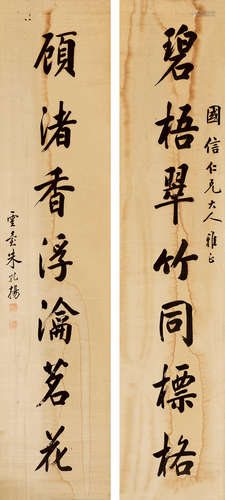 國信仁兄大人雅正
碧梧翠竹同標格
顧渚香浮瀹茗花
雲臺朱孔揚